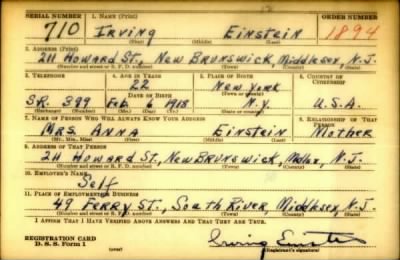 SERIAL NUMBER 1. NAME (Print) ORDER NUMBER
710 Irving Einstein 1894
(First) (Middle) (Last)
2. ADDRESS (Print)
211 Howard St., New Brunswick, Middlesex, N.J.
(Number and street or R. F. D. number) (Town) (County) (State)
3. TELEPHONE 4. AGE IN YEARS 5. PLACE OF BIRTH 6. COUNTRY OF CITIZENSHIP
22 New York
DATE OF BIRTH
S.R. 399 Feb 6 1918 N.Y. U.S.A.
(Exchange) (Number) (Mo.) (Day) (Yr.) (State or country)
7. NAME OF PERSON WHO WILL ALWAYS KNOW YOUR ADDRESS 8. RELATIONSHIP OF THAT PERSON
Mrs. Anna Einstein Mother
(Mr., Mrs., Miss) (First) (Middle) (Last)
9. ADDRESS OF THAT PERSON
211 Howard St., New Brunswick, N.J.
(Number and street or R. F. D. number) (Town) (County) (State)
10. EMPLOYER'S NAME
Self
11. PLACE OF EMPLOYMENT OR BUSINESS
49 Ferry St., South River, Middlesex, N.J.
(Number and street or R. F. D. number) (Town) (County) (State)
I AFFIRM THAT I HAVE VERIFIED ABOVE ANSWERS AND THAT THEY ARE TRUE.
REGISTRATION CARD
D. S. S. Form 1 (over) Irving Einstein
(Registrant's signature)